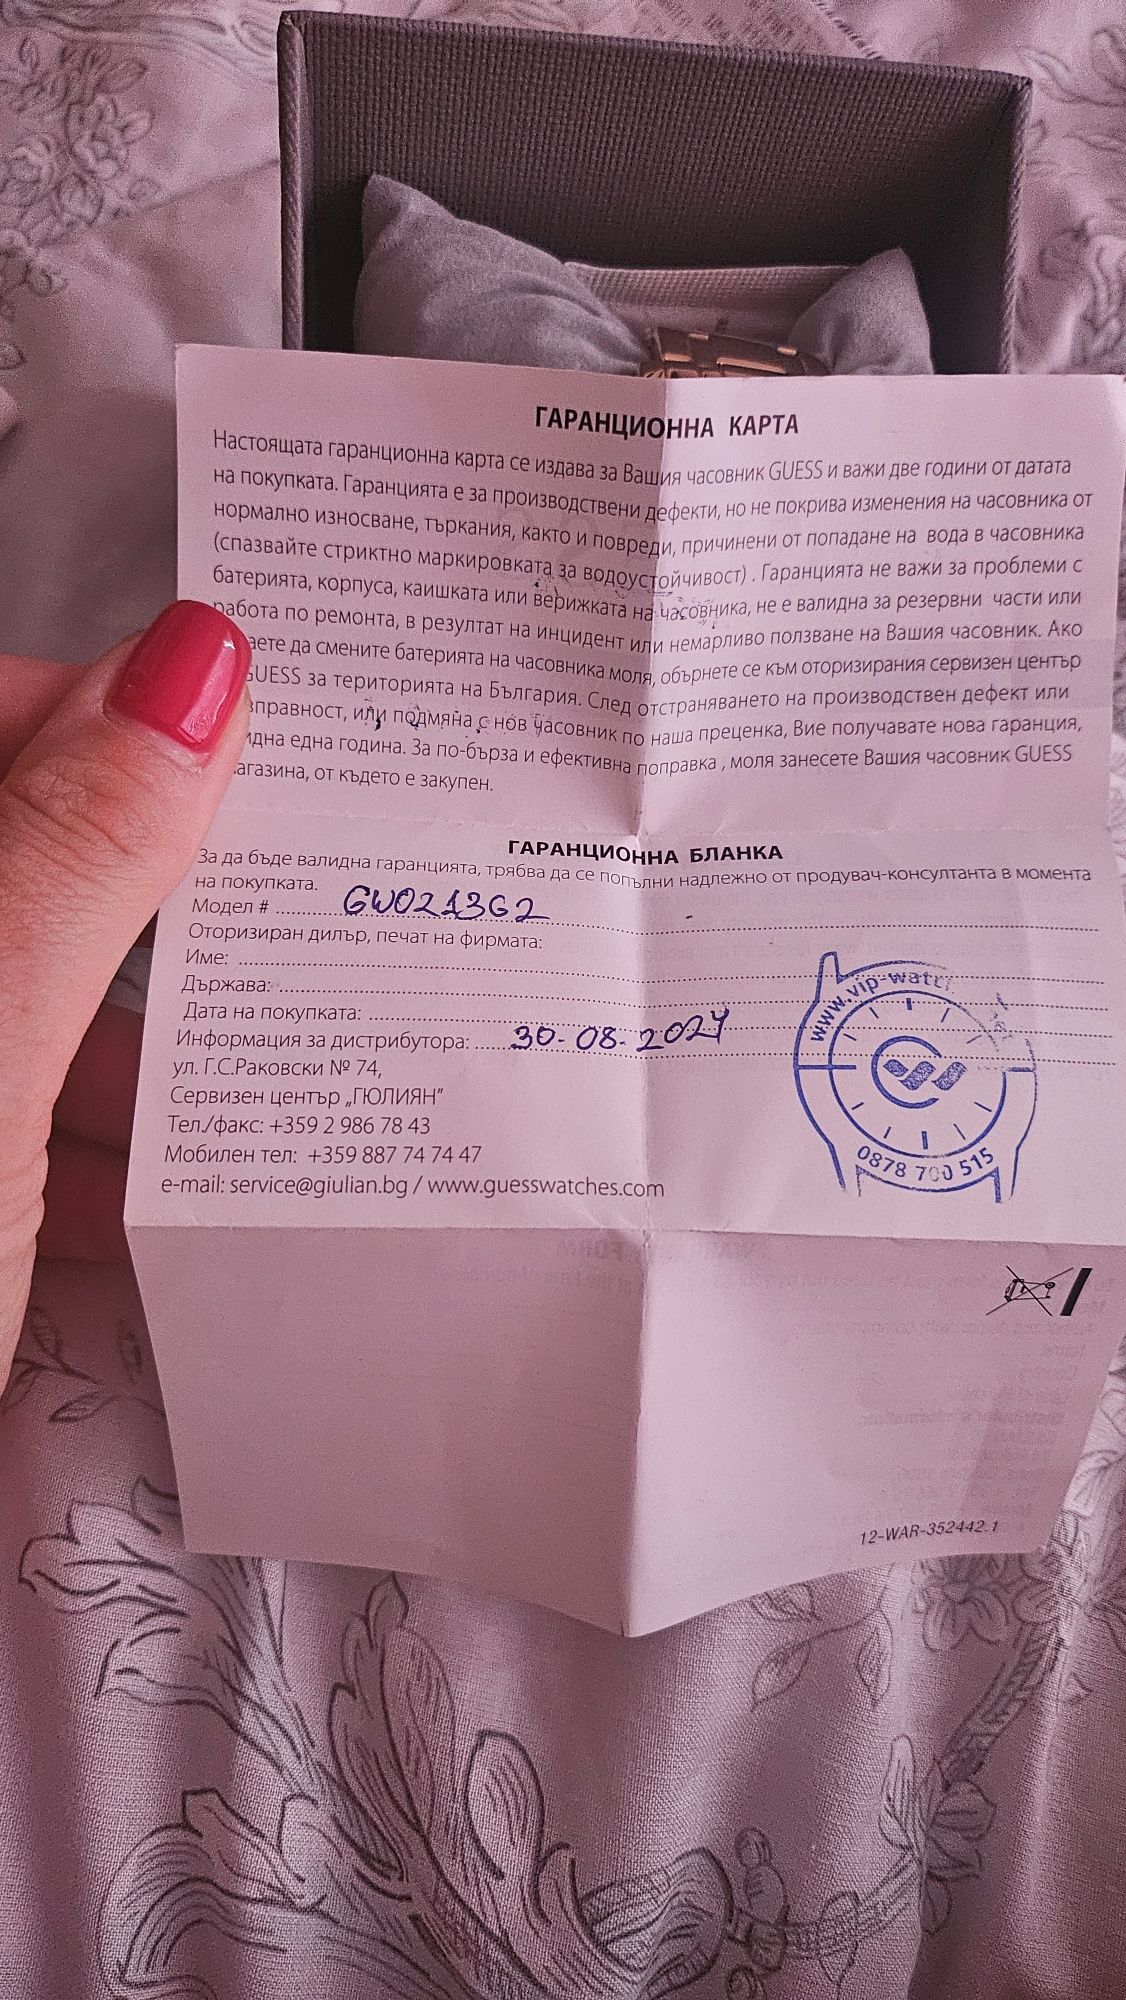 ГАРАНЦИОННА КАРТА
Настоящата гаранционна карта се издава за Вашия часовник GUESS и важи две години от датата
на покупката. Гаранцията е за производствени дефекти, но не покрива изменения на часовника от
нормално износване, търкания, както и повреди, причинени от попадане на вода в часовника
(спазвайте стриктно маркировката за водоустойчивост) . Гаранцията не важи за проблеми с
батерията, корпуса, каишката или верижката на часовника, не е валидна за резервни части или
работа по ремонта, в резултат на инцидент или немарливо ползване на Вашия часовник. Ако
да смените батерията на часовника моля, обърнете се към оторизирания сервизен център
GUESS за територията на България. След отстраняването на производствен дефект или
или подмяна с нов часовник по наша преценка, Вие получавате нова гаранция,
една година. За по-бърза и ефективна поправка , моля занесете Вашия часовник GUESS
от където е закупен.
ГАРАНЦИОННА БЛАНКА
За да бъде валидна гаранцията, трябва да се попълни надлежно от продувач-консултанта в момента
на покупката.
Модел # GW0213G2
Оторизиран дилър, печат на фирмата:
Име:
Държава:
Дата на покупката:
Информация за дистрибутора: 30-08-2024
ул. Г.С.Раковски № 74,
Сервизен център „ГЮЛИЯН“
Тел./факс: +359 2 986 78 43
Мобилен тел: +359 887 74 74 47
e-mail: service@giulian.bg / www.guesswatches.com
0878 700 515
12-WAR-352442.1